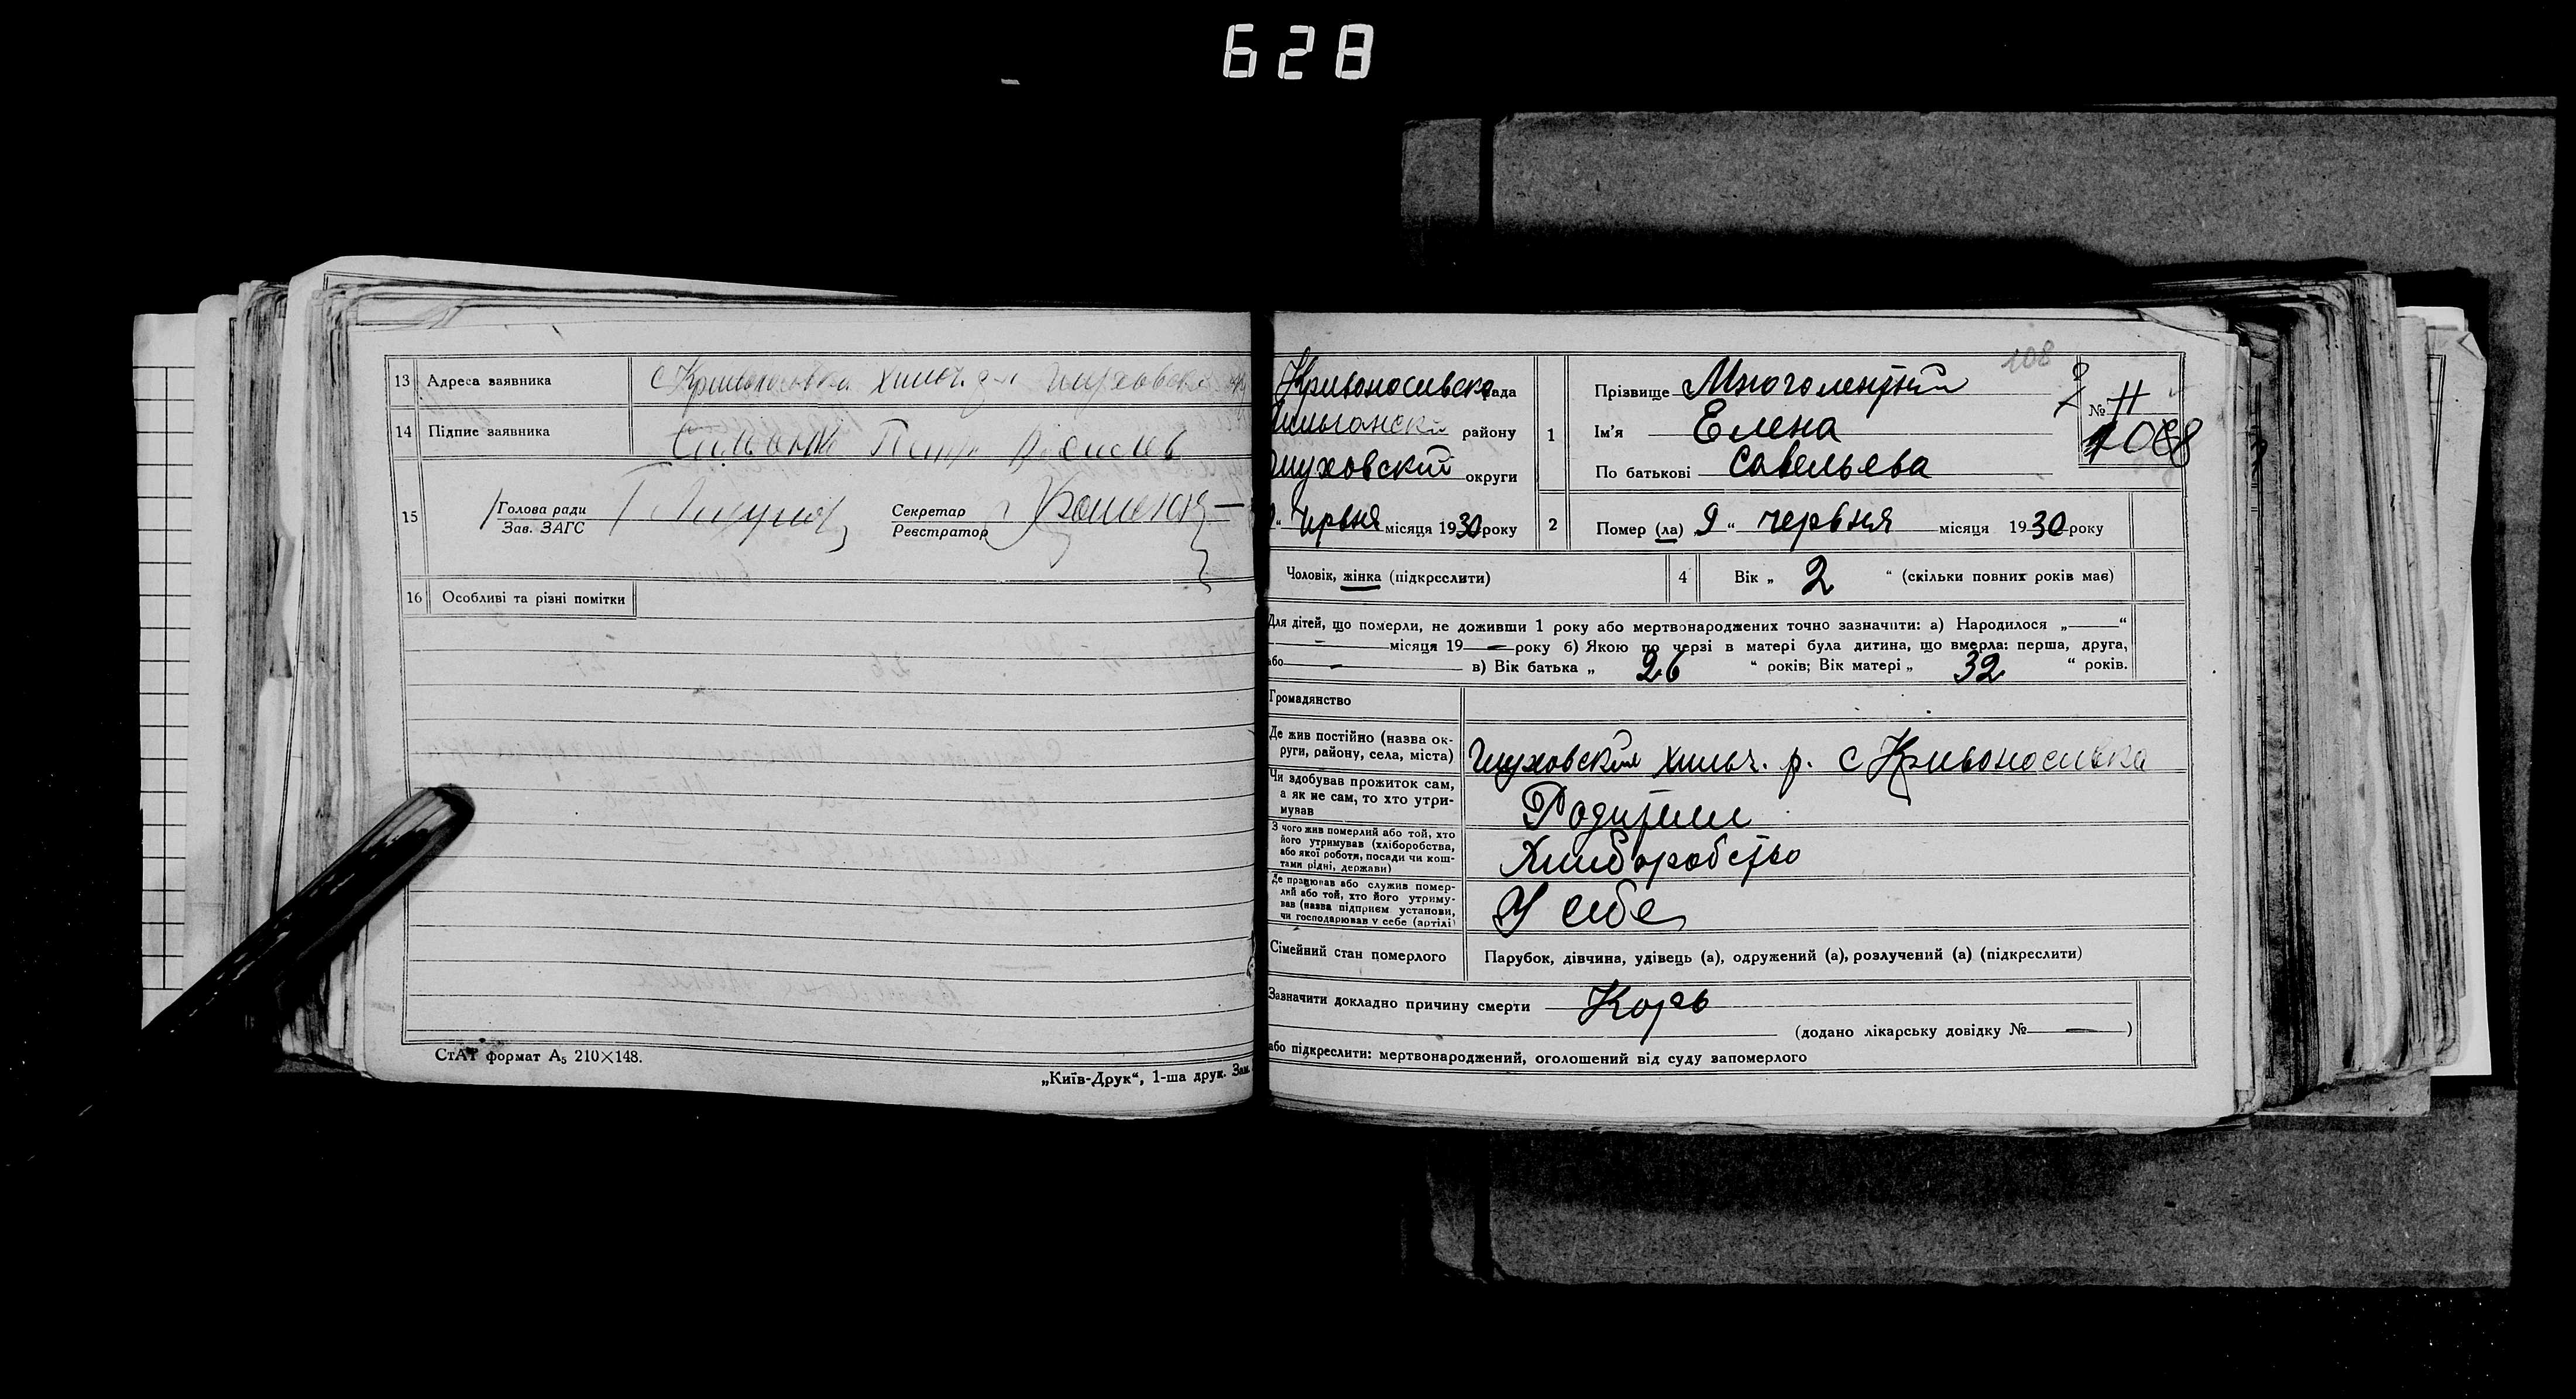 628
13 Адреса заявника
14 Підпис заявника
15 Голова ради
Зав. ЗАГС
Секретар
Реєстратор
16 Особливі та різні помітки
СтАТ формат А5 210×148.
„Київ-Друк“, 1-ша друк. Зам.
108
Кривоносивско рада
району
Глуховский округи
червня місяця 1930 року
1 Прізвище
Ім'я Елена
По батькові Савельева
№ 11
1068
2 Помер (ла) „9“ червня місяця 1930 року
Чоловік, жінка (підкреслити)
4 Вік „ 2 “ (скільки повних років має)
Для дітей, що померли, не доживши 1 року або мертвонароджених точно зазначити: а) Народилося „—“
— місяця 19 — року б) Якою по черзі в матері була дитина, що вмерла: перша, друга,
або — в) Вік батька „ 26 “ років; Вік матері „ 32 “ років.
Громадянство
Де жив постійно (назва ок-
руги, району, села, міста)
Глуховский Хильч. р. с Кривоносивка
Чи здобував прожиток сам,
а як не сам, то хто утри-
мував
Родители
З чого жив померлий або той, хто
його утримував (хліборобства,
або якої роботи, посади чи кош-
тами рідні, держави)
Хлиборобство
Де працював або служив помер-
лий або той, хто його утриму-
вав (назва підприєм установи,
чи господарював у себе (артілі)
У себе
Сімейний стан померлого
Парубок, дівчина, удівець (а), одружений (а), розлучений (а) (підкреслити)
Зазначити докладно причину смерти Корь
(додано лікарську довідку № — )
або підкреслити: мертвонароджений, оголошений від суду запомерлого